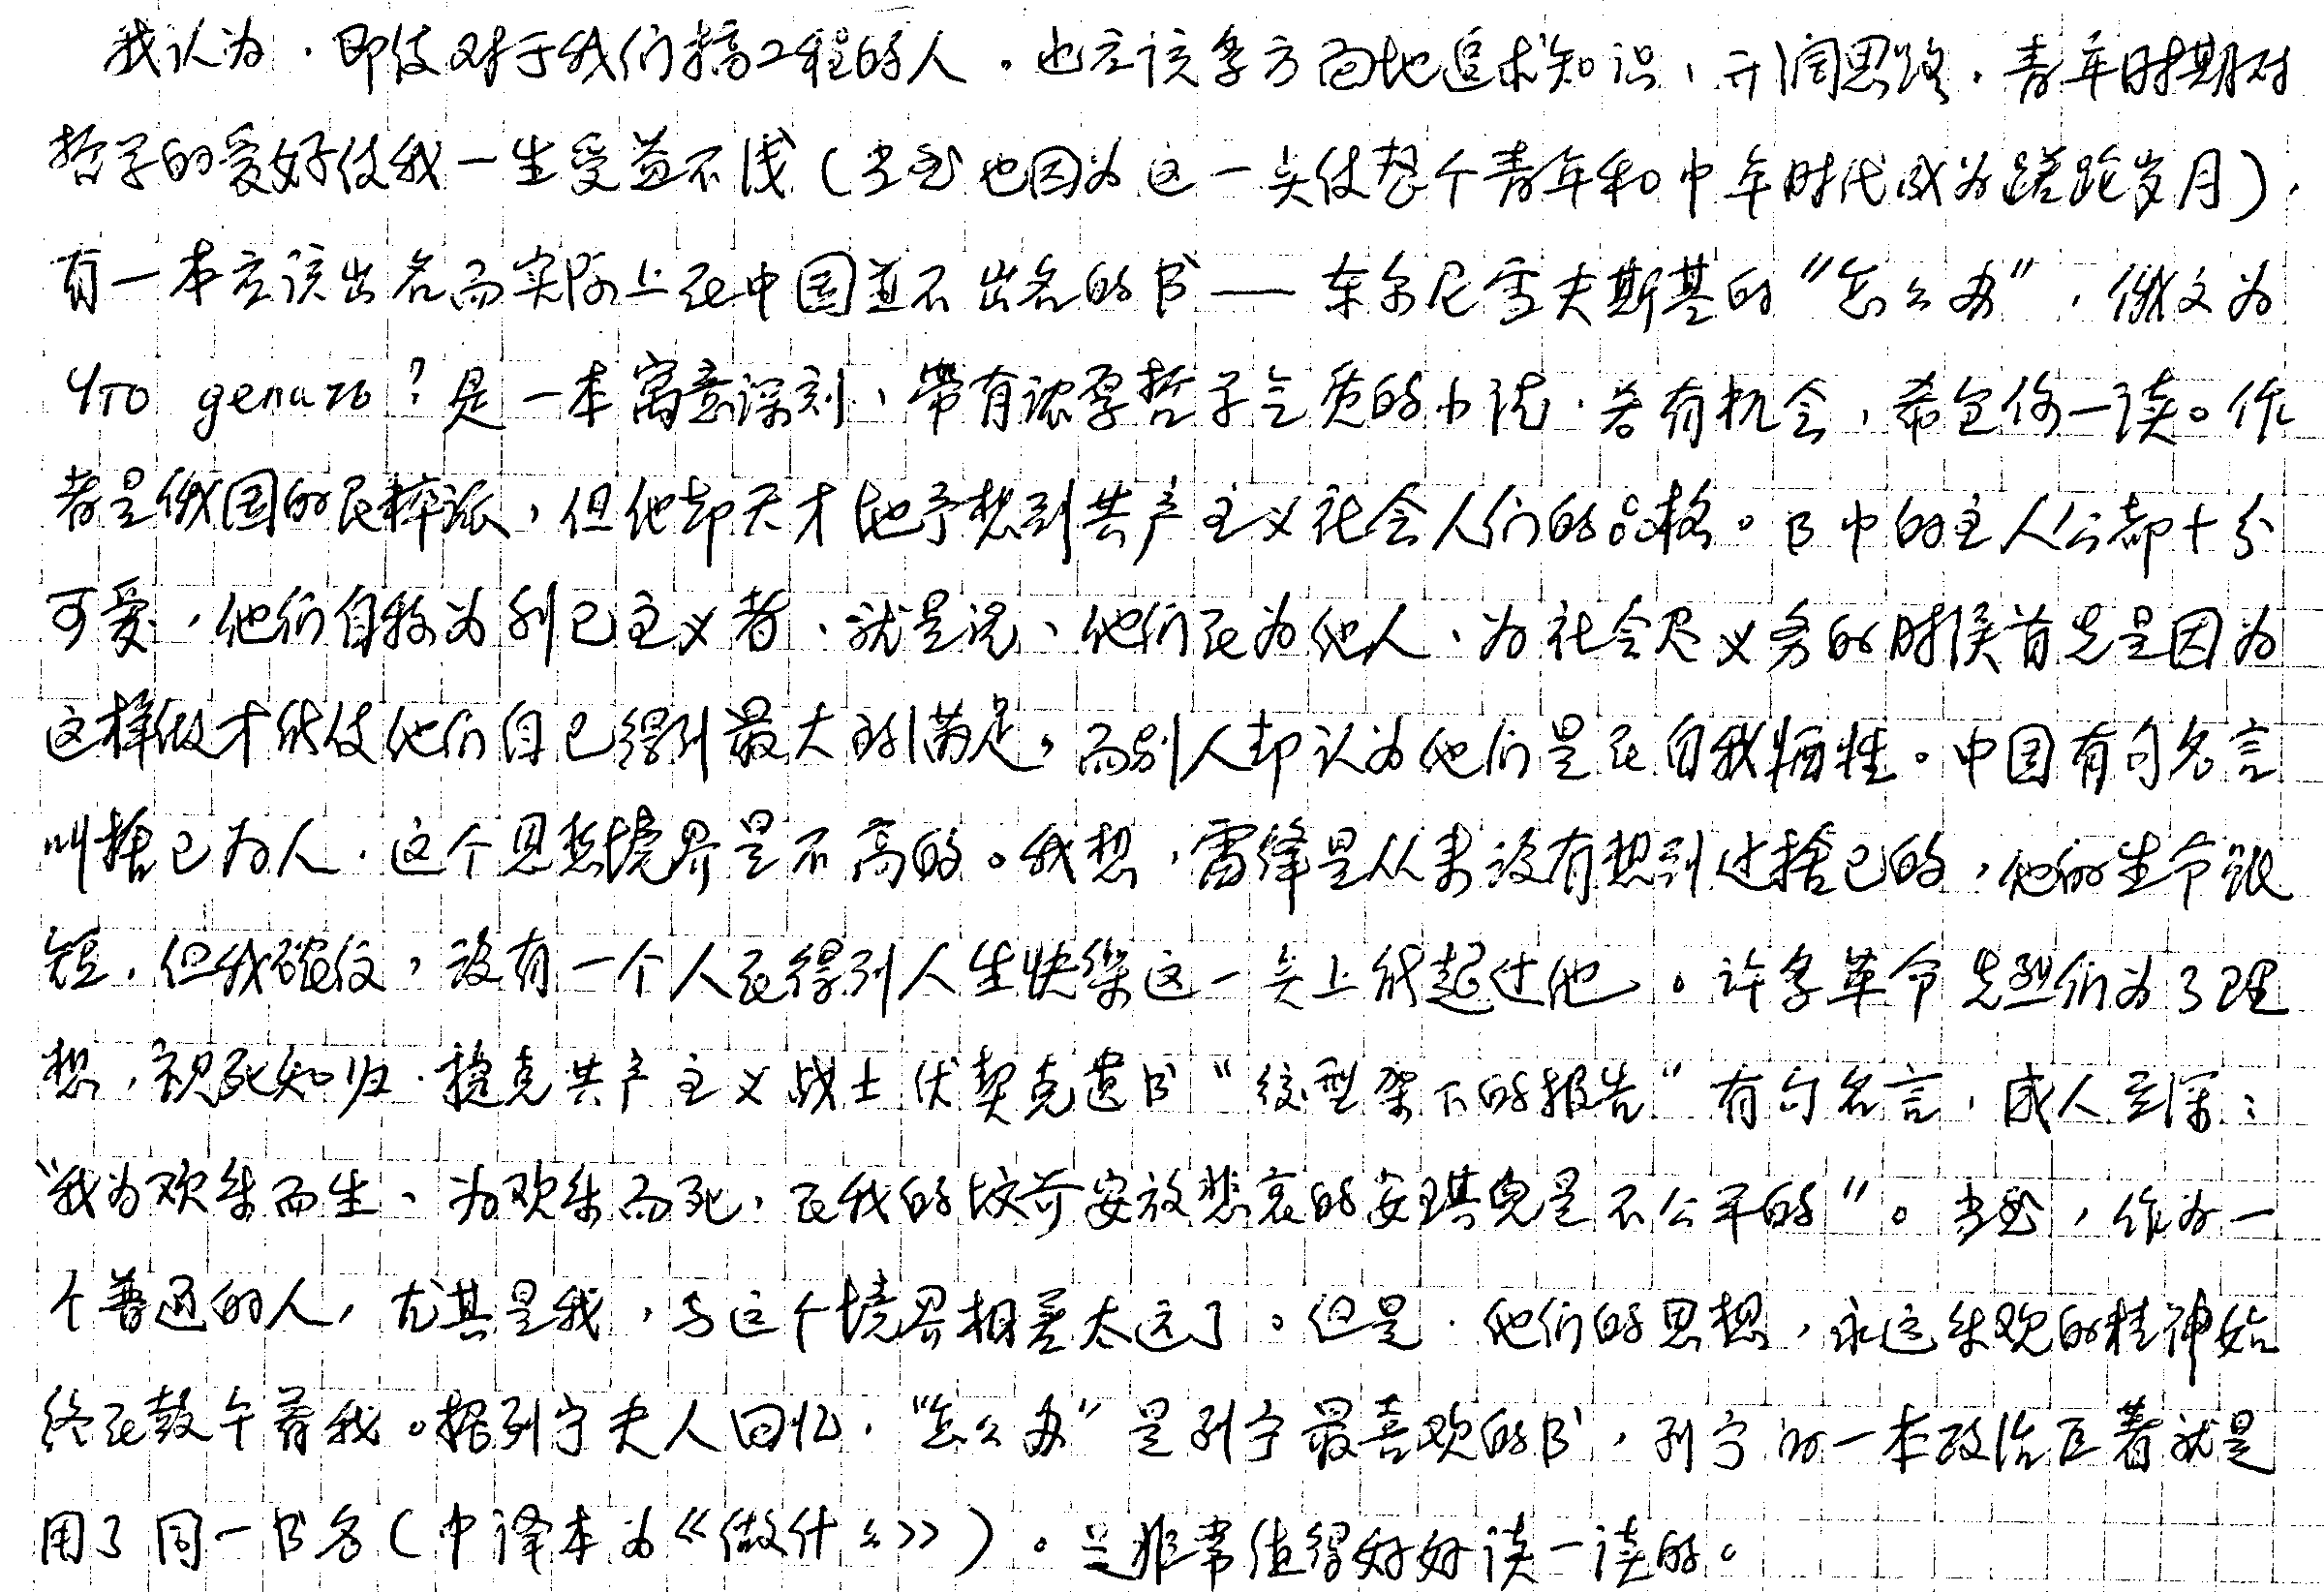 我认为，即使对于我们搞工程的人，也应该多方面地追求知识、开阔思路，青年时期对
哲学的爱好使我一生受益不浅（当然也因为这一点使整个青年和中年时代成为蹉跎岁月），
有一本应该出名而实际上在中国并不出名的书——车尔尼雪夫斯基的“怎么办”，俄文为
Что делать？是一本寓意深刻、带有浓厚哲学气质的小说，若有机会，希望你一读。作
者是俄国的民粹派，但他却天才地予想到共产主义社会人们的品格。书中的主人公都十分
可爱，他们自称为利已主义者，就是说、他们在为他人、为社会尽义务的时候首先是因为
这样做才能使他们自已得到最大的满足，而别人却认为他们是在自我牺牲。中国有句名言
叫捨已为人，这个思想境界是不高的。我想，雷锋是从来没有想到过捨已的，他的生命很
短，但我确信，没有一个人在得到人生快乐这一点上能超过他。许多革命先烈们为了理
想，视死如归，捷克共产主义战士伏契克遗书“绞型架下的报告”有句名言，感人至深：
“我为欢乐而生、为欢乐而死，在我的坟前安放悲哀的安琪儿是不公平的”。当然，作为一
个普通的人，尤其是我，与这个境界相差太远了。但是，他们的思想，永远乐观的精神始
终在鼓午着我。据列宁夫人回忆，“怎么办”是列宁最喜欢的书，列宁的一本政治巨著就是
用了同一书名（中译本为《做什么》）。是非常值得好好读一读的。